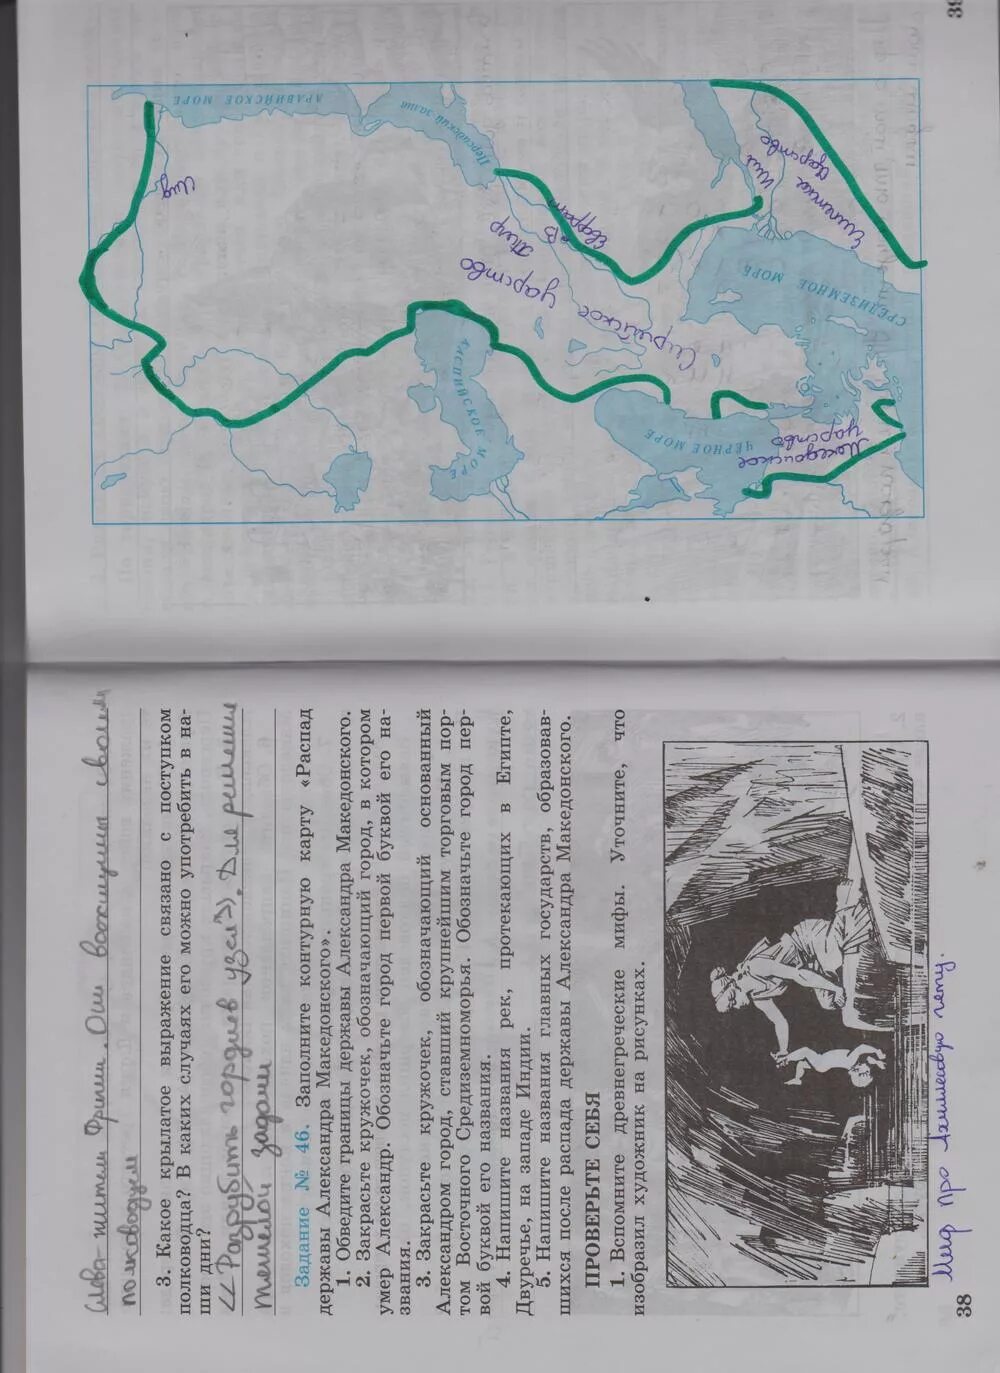 Слева - жители Фригии. Они восхищены своим
полководцем
3. Какое крылатое выражение связано с поступком
полководца? В каких случаях его можно употребить в на-
ши дни?
«Разрубить гордиев узел». Для решения
задачи
Задание № 46. Заполните контурную карту «Распад
державы Александра Македонского».
1. Обведите границы державы Александра Македонского.
2. Закрасьте кружочек, обозначающий город, в котором
умер Александр. Обозначьте город первой буквой его на-
звания.
3. Закрасьте кружочек, обозначающий основанный
Александром город, ставший крупнейшим торговым пор-
том Восточного Средиземноморья. Обозначьте город пер-
вой буквой его названия.
4. Напишите названия рек, протекающих в Египте,
Двуречье, на западе Индии.
5. Напишите названия главных государств, образовав-
шихся после распада державы Александра Македонского.
ПРОВЕРЬТЕ СЕБЯ
1. Вспомните древнегреческие мифы. Уточните, что
изобразил художник на рисунках.
Миф про Ахиллесовую пяту.
38
Македонское
царство
ЧЁРНОЕ МОРЕ
КАСПИЙСКОЕ МОРЕ
СРЕДИЗЕМНОЕ
МОРЕ
Сирийское царство
Тигр
В
Евфрат
Египетское
царство
Нил
Персидский залив
АРАВИЙСКОЕ МОРЕ
Инд
39